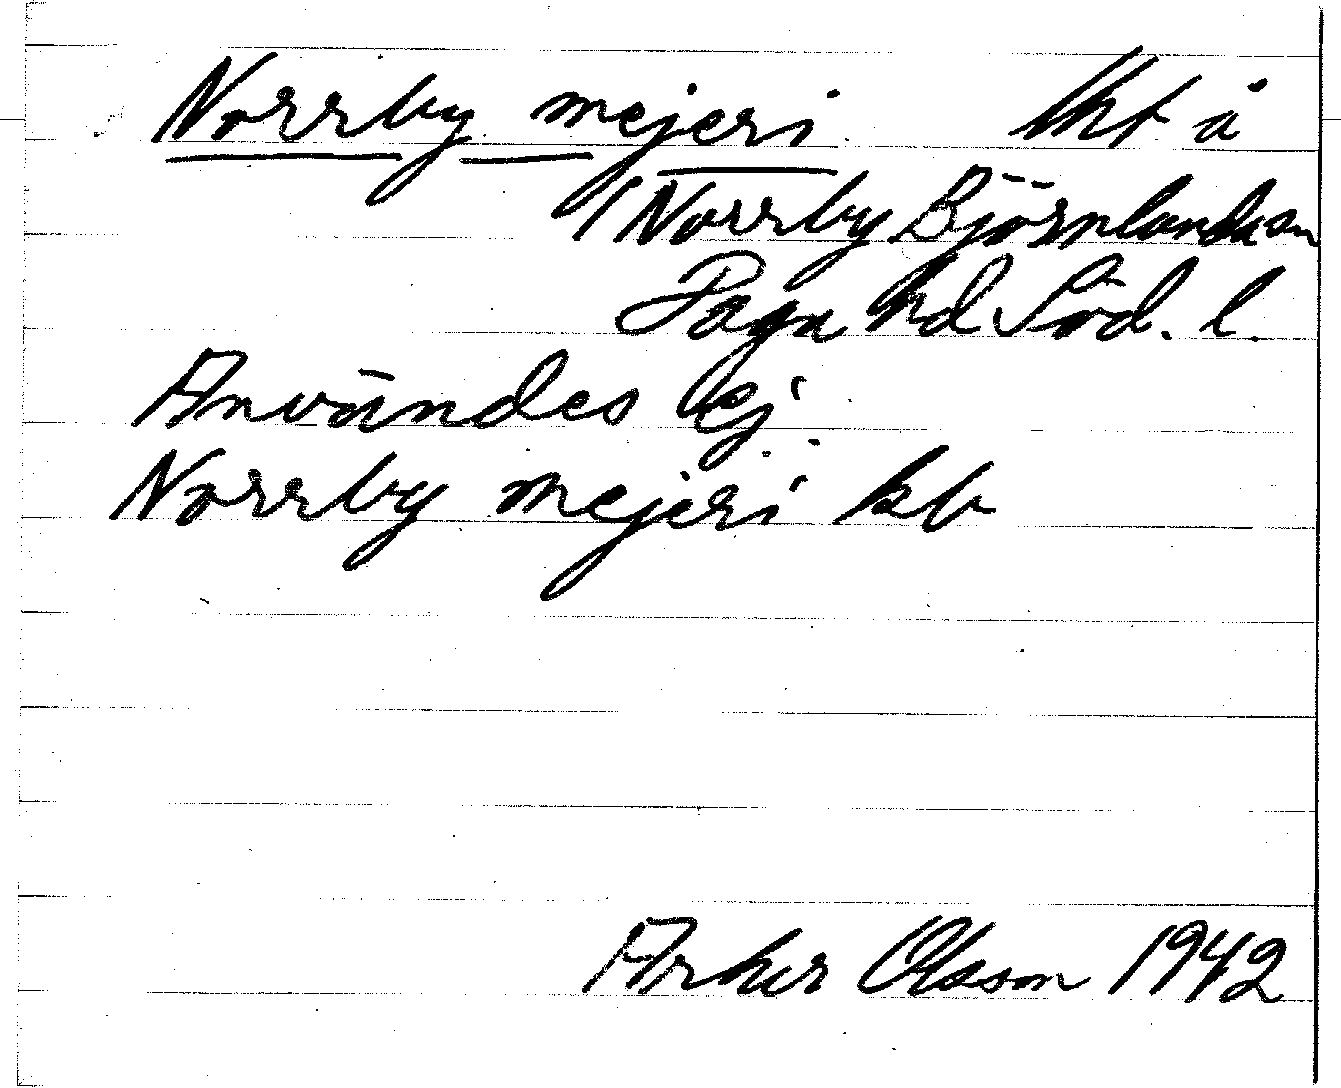 Norrby mejeri lht å
1 Norrby Björnlunda sn
Daga hd Söd. l.
Användes ej
Norrby mejeri kb
Olsson 1942